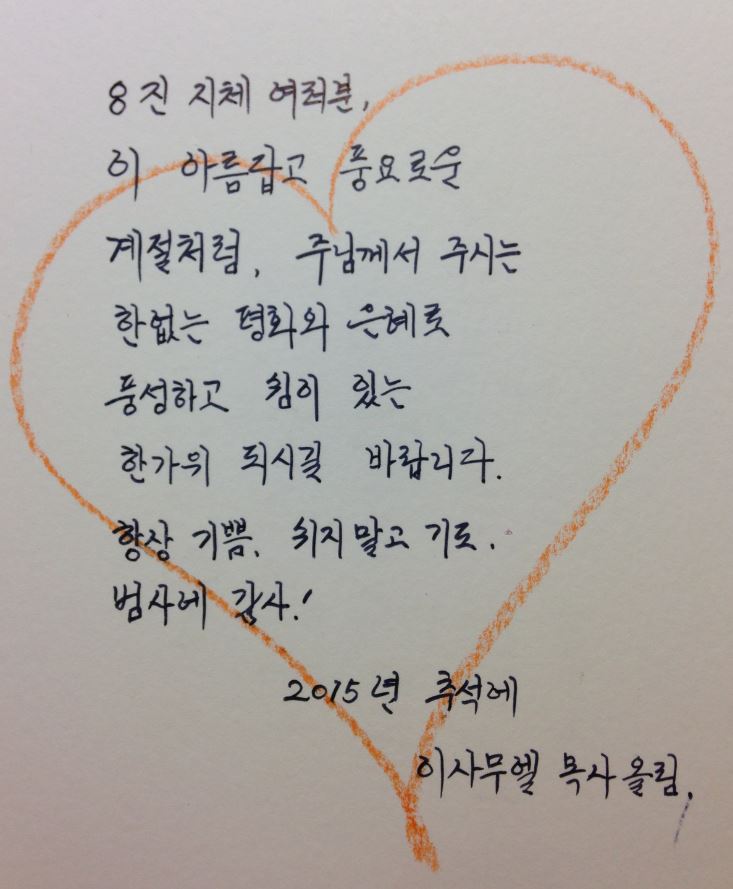 8진 지체 여러분,
이 아름답고 풍요로운
계절처럼, 주님께서 주시는
한없는 평화와 은혜로
풍성하고 쉼이 있는
한가위 되시길 바랍니다.
항상 기쁨. 쉬지말고 기도.
범사에 감사!
2015년 추석에
이사무엘 목사 올림.